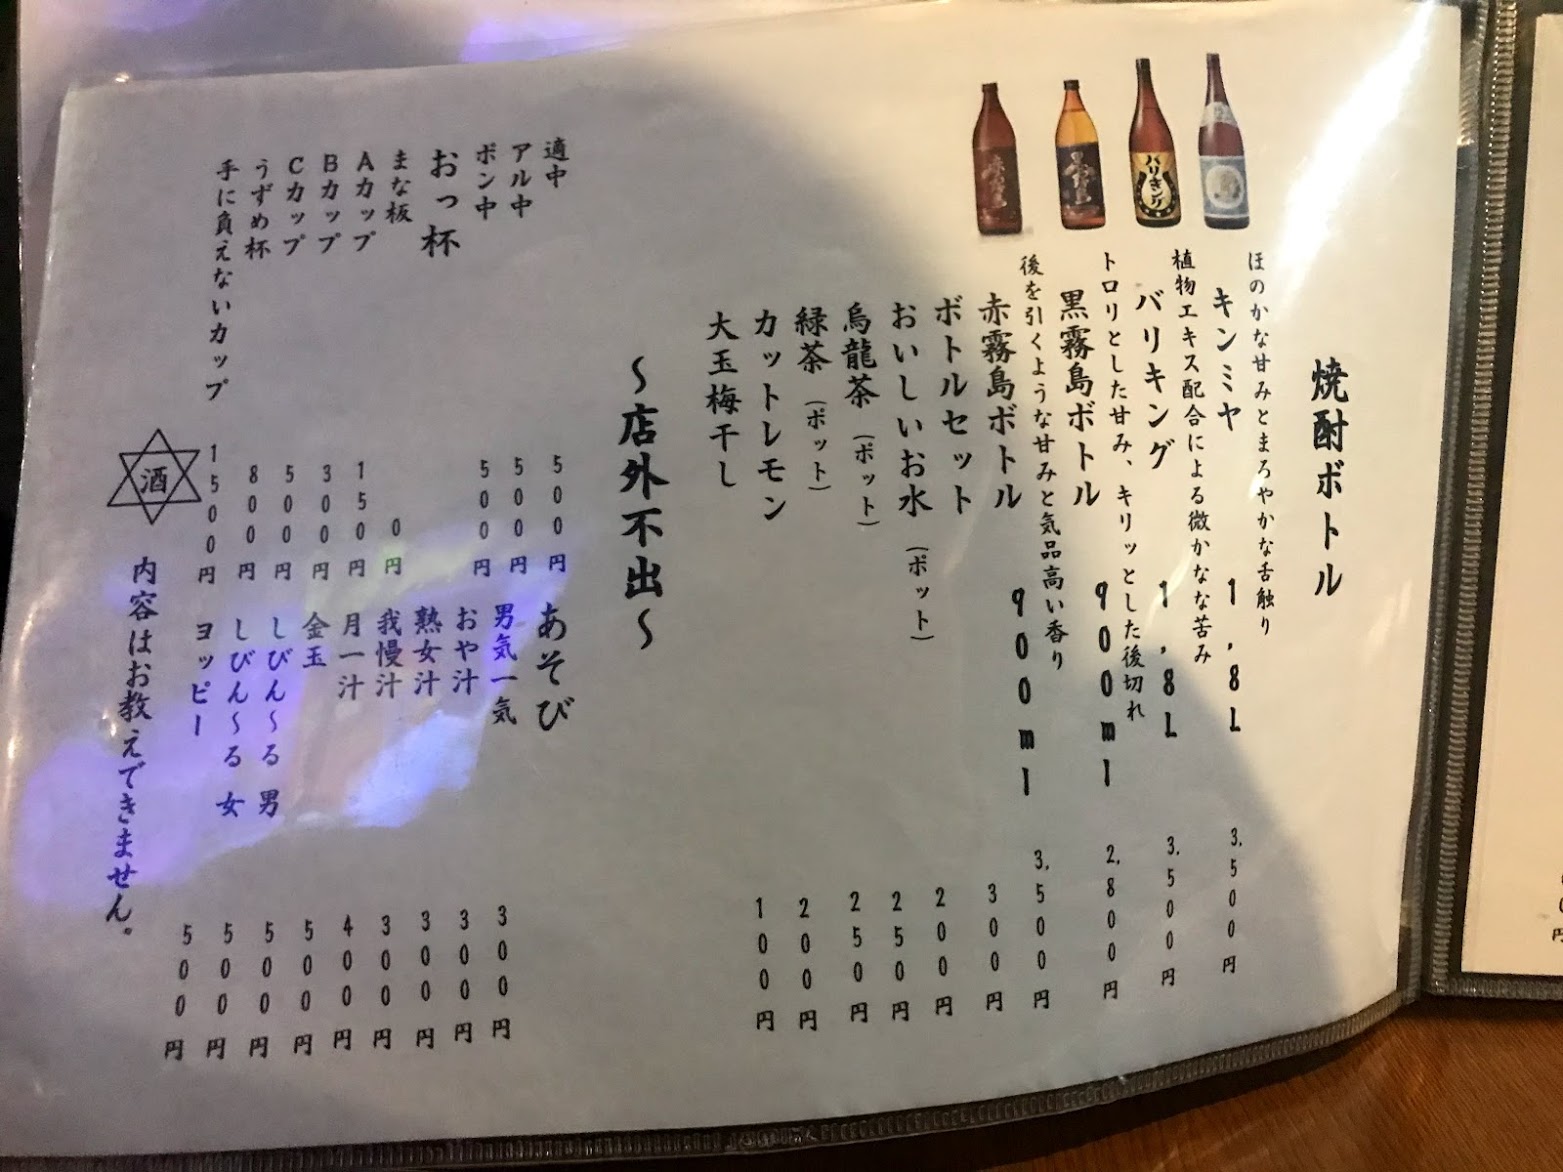 焼酎ボトル
ほのかな甘みとまろやかな舌触り
キンミヤ 1,8L 3,500円
植物エキス配合による微かなな苦み
バリキング 1,8L 3,500円
トロリとした甘み、キリッとした後切れ
黒霧島ボトル 900ml 2,800円
後を引くような甘みと気品高い香り
赤霧島ボトル 900ml 3,500円
ボトルセット 300円
おいしいお水(ポット) 200円
烏龍茶(ポット) 250円
緑茶(ポット) 250円
カットレモン 200円
大玉梅干し 100円
〜店外不出〜
適中 500円
アル中 500円
ポン中 500円
おっ杯
まな板 0円
Aカップ 150円
Bカップ 300円
Cカップ 500円
うずめ杯 800円
手に負えないカップ 1500円
あそび
男気一気 300円
おや汁 300円
熟女汁 300円
我慢汁 300円
月一汁 400円
金玉 500円
しびん〜る 男 500円
しびん〜る 女 500円
ヨッピー 500円
酒
内容はお教えできません。
バリキング
円